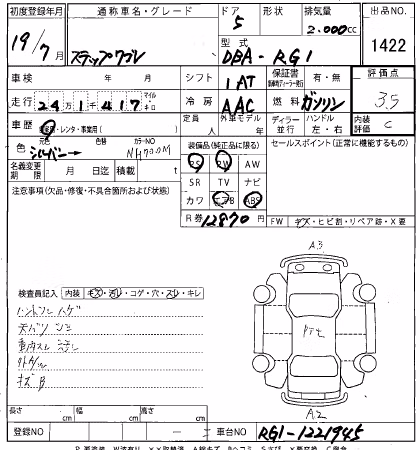 初度登録年月 通称車名・グレード ドア 形状 排気量 出品NO.
19/7月 ステップワゴン 5 2.000cc 1422
型式 DBA-RG1
車検 年 月 シフト 1AT 保証書 有・無 評価点
走行 24万1千417マイルキロ 冷房 AAC 燃料 ガソリン 3.5
車歴 自家用・レンタ・事業用( ) 定員 人 外車モデル 年 ディーラー 並行 ハンドル 左・右 内装 C
色 元色 シルバー → 色替 カラーNO NH700M 装備品(純正品に限る) セールスポイント(正常に機能するもの)
名義変更期限 月 日迄 積載 t PS PW AW
注意事項(欠品・修復・不具合箇所および状態) SR TV ナビ
カワ エアB ABS
R券 12870円 FW キズ・ヒビ割・リペア跡・X要
A3
検査員記入 内装 キズ・汚レ・コゲ・穴・スレ・キレ
ハンドルハゲ
天バリシミ
キズB
A2
長さ cm 幅 cm 高さ cm
登録NO - 車台NO RG1-1221945